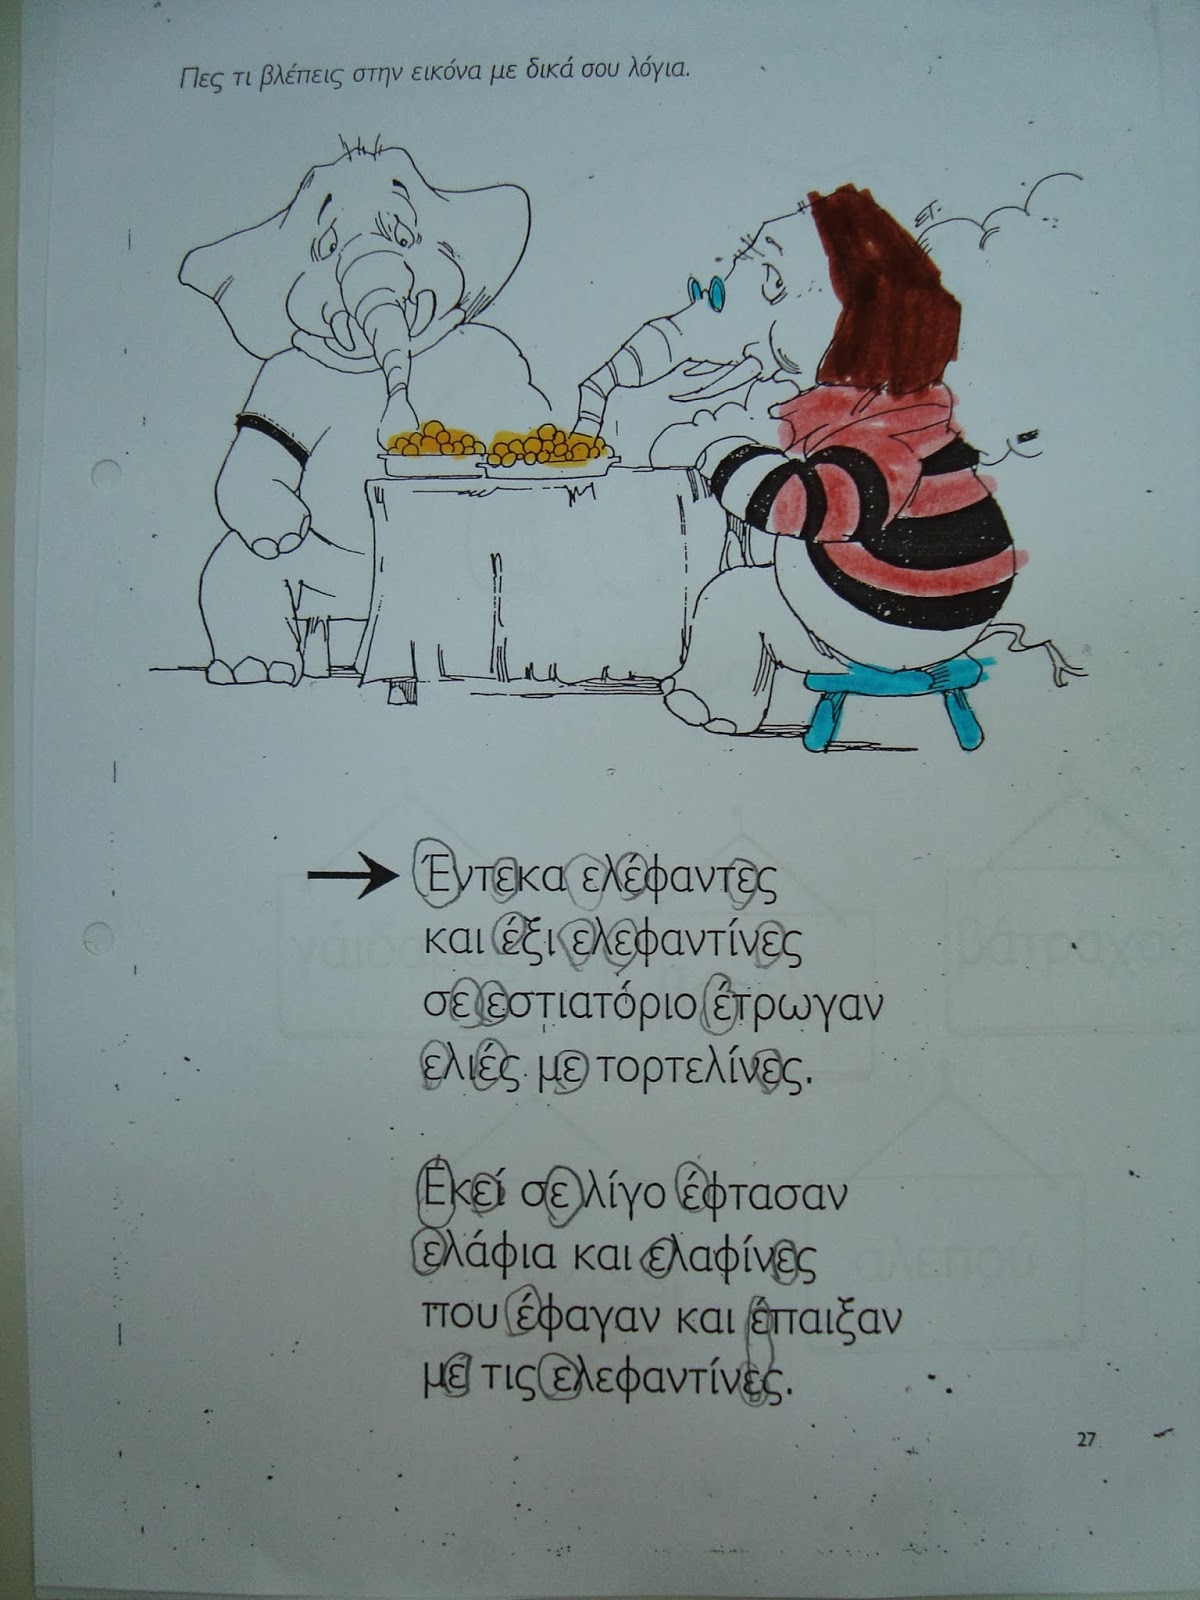 Πες τι βλέπεις στην εικόνα με δικά σου λόγια.
ΕΤ.
Έντεκα ελέφαντες
και έξι ελεφαντίνες
σε εστιατόριο έτρωγαν
ελιές με τορτελίνες.
Εκεί σε λίγο έφτασαν
ελάφια και ελαφίνες
που έφαγαν και έπαιξαν
με τις ελεφαντίνες.
27